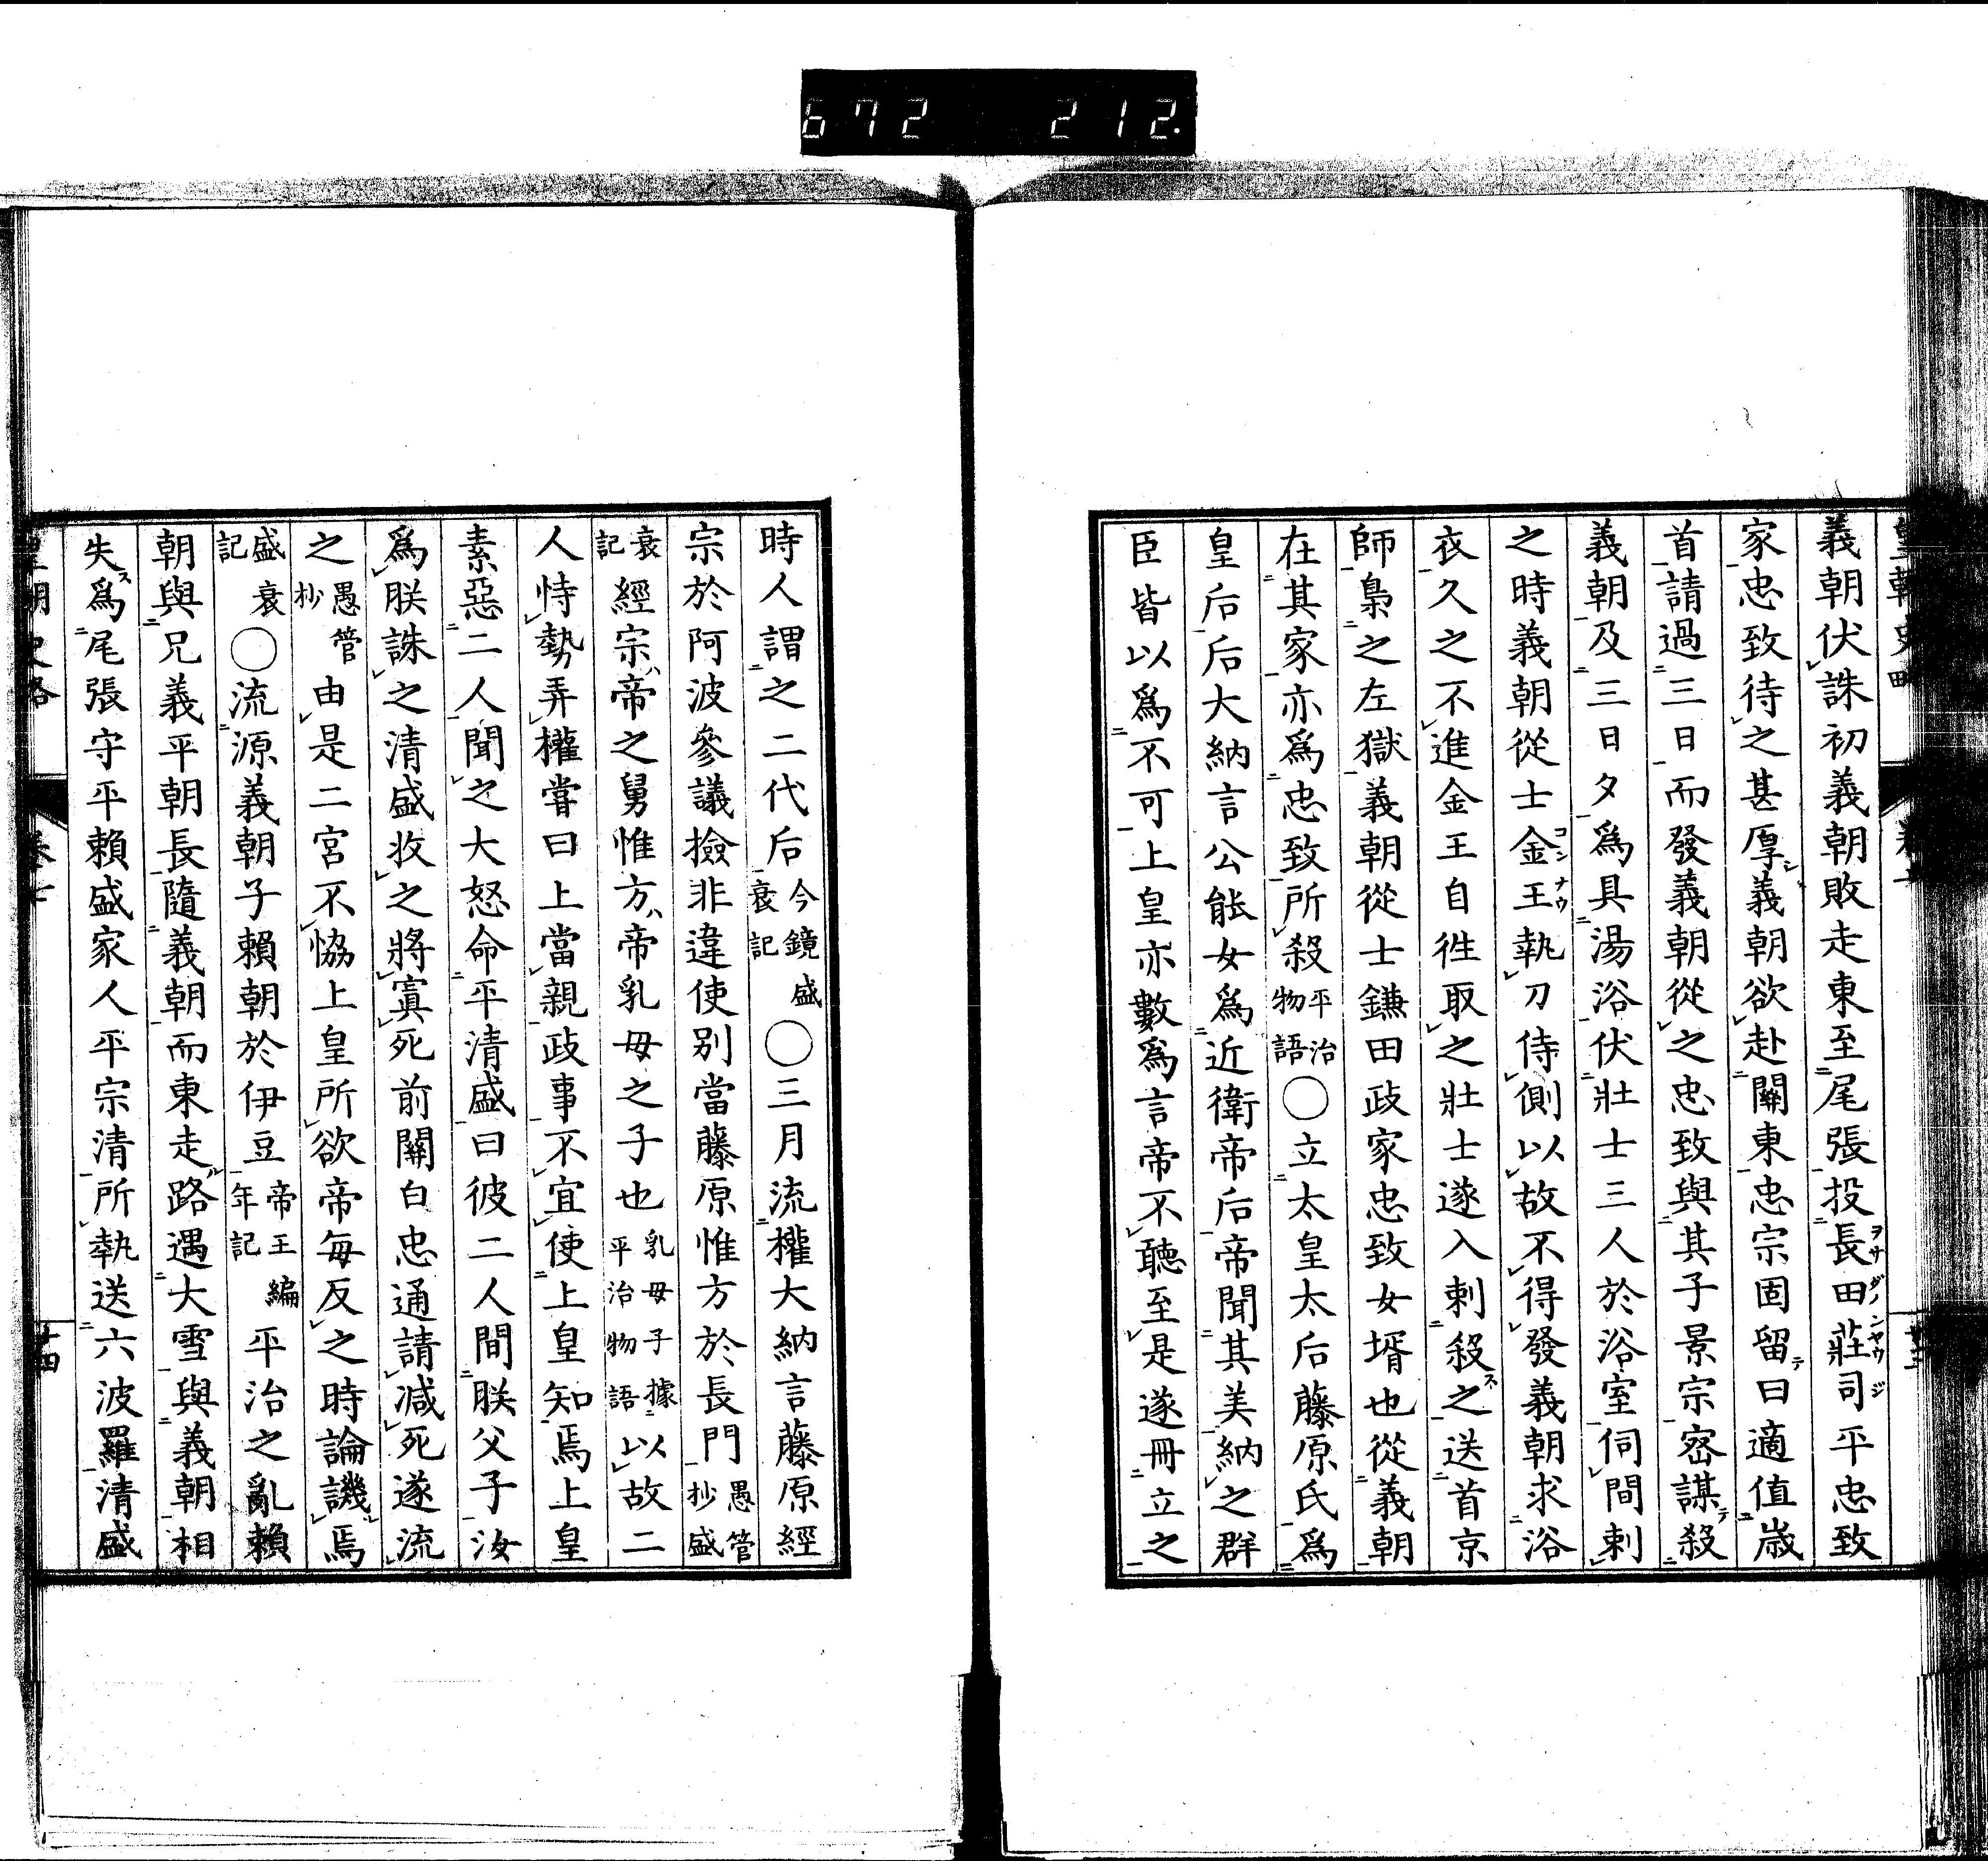 672 212.
義朝伏誅初義朝敗走東至尾張投長田莊司平忠致
家忠致待之甚厚義朝欲赴關東忠宗固留曰適值歳
首請過三日而發義朝從之忠致與其子景宗密謀殺
義朝及三日夕爲具湯浴伏壯士三人於浴室伺間刺
之時義朝從士金王執刀侍側以故不得發義朝求浴
衣久之不進金王自徃取之壯士遂入刺殺之送首京
師梟之左獄義朝從士鎌田政家忠致女壻也從義朝
在其家亦爲忠致所殺平治物語〇立太皇太后藤原氏爲
皇后后大納言公能女爲近衛帝后帝聞其美納之群
臣皆以爲不可上皇亦數爲言帝不聽至是遂冊立之
時人謂之二代后今鏡盛衰記〇三月流權大納言藤原經
宗於阿波參議撿非違使別當藤原惟方於長門愚管抄盛
衰記經宗帝之舅惟方帝乳母之子也乳母子據平治物語以故二
人恃勢弄權嘗曰上當親政事不宜使上皇知焉上皇
素惡二人聞之大怒命平清盛曰彼二人間朕父子汝
爲朕誅之清盛收之將寘死前關白忠通請減死遂流
之愚管抄由是二宮不恊上皇所欲帝每反之時論譏焉
盛衰記〇流源義朝子賴朝於伊豆帝王編年記平治之亂賴
朝與兄義平朝長隨義朝而東走路遇大雪與義朝相
失爲尾張守平賴盛家人平宗清所執送六波羅清盛
皇朝史略 卷七 十四